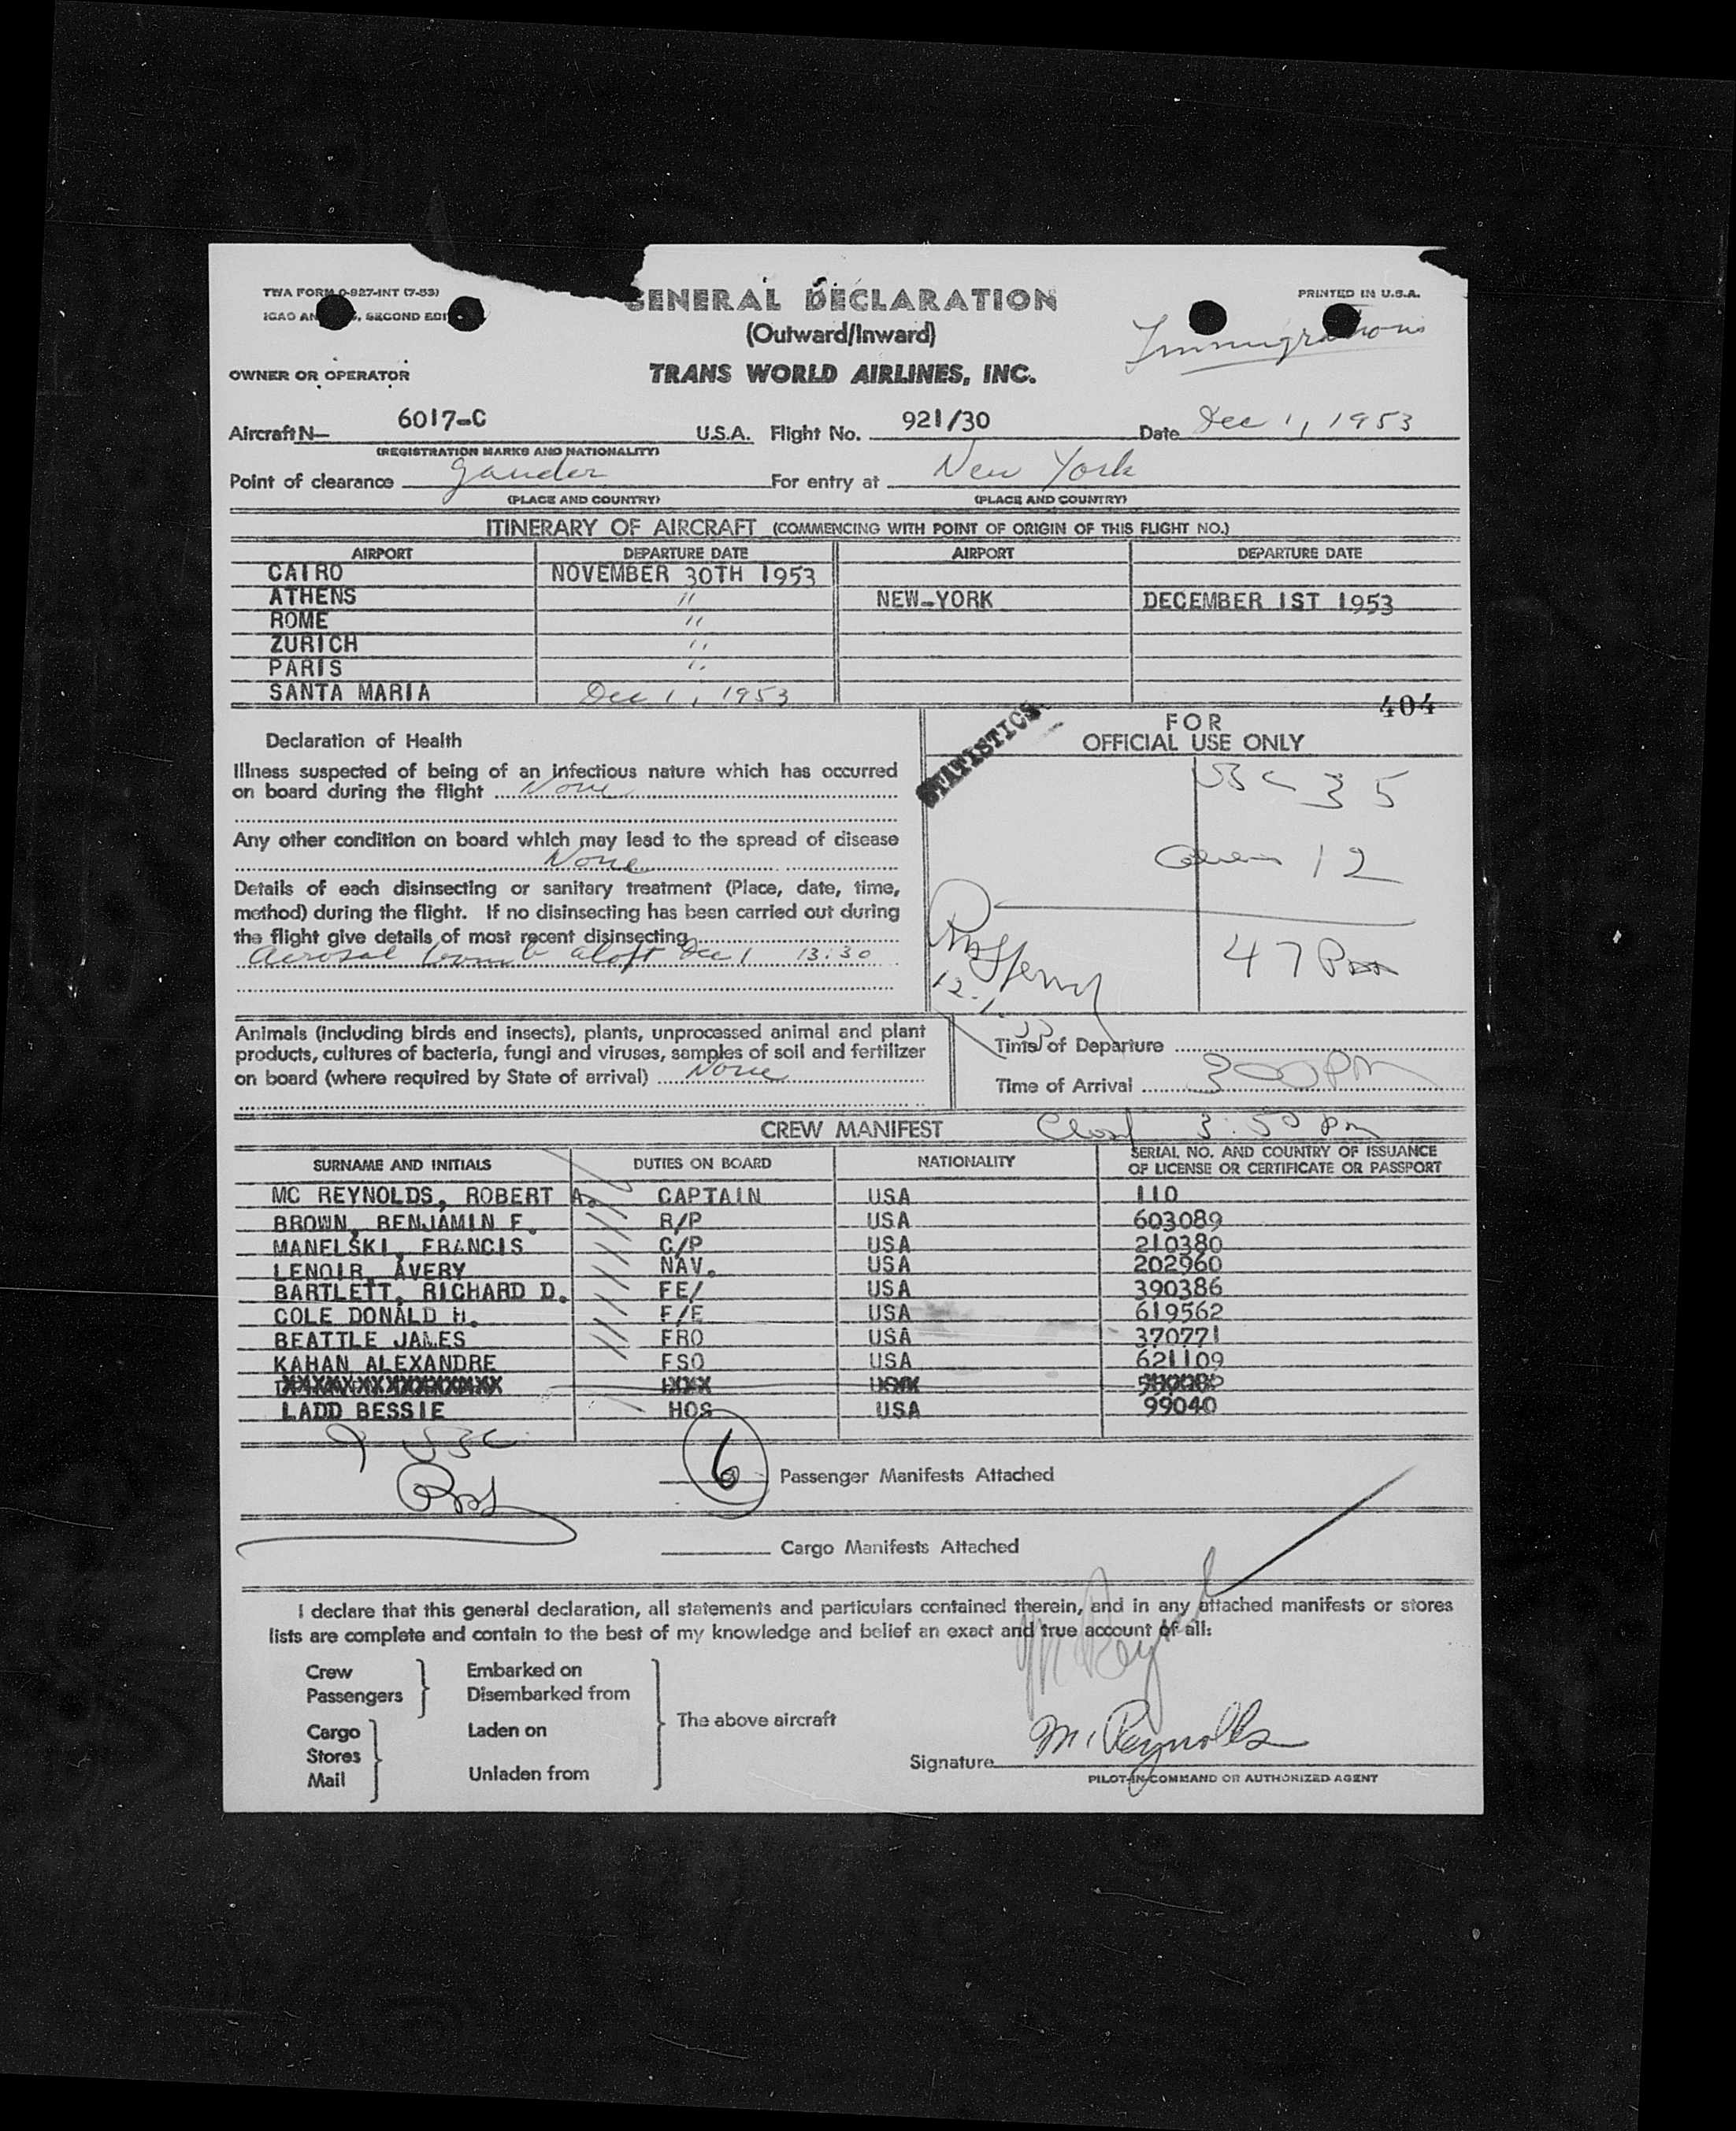 TWA FORM O-827-INT (7-53)
GENERAL DECLARATION
PRINTED IN U.S.A.
ICAO AN , SECOND EDI
(Outward/Inward)
Immigrations
OWNER OR OPERATOR
TRANS WORLD AIRLINES, INC.
Aircraft N— 6017-C U.S.A. Flight No. 921/30 Date Dec 1, 1953
(REGISTRATION MARKS AND NATIONALITY)
Point of clearance Gander For entry at New York
(PLACE AND COUNTRY) (PLACE AND COUNTRY)
ITINERARY OF AIRCRAFT (COMMENCING WITH POINT OF ORIGIN OF THIS FLIGHT NO.)
AIRPORT DEPARTURE DATE AIRPORT DEPARTURE DATE
CAIRO NOVEMBER 30TH 1953
ATHENS " NEW-YORK DECEMBER 1ST 1953
ROME "
ZURICH "
PARIS "
SANTA MARIA Dec 1, 1953
404
STATISTICS
FOR
OFFICIAL USE ONLY
Declaration of Health
Illness suspected of being of an infectious nature which has occurred
on board during the flight None
Any other condition on board which may lead to the spread of disease
None
Details of each disinsecting or sanitary treatment (Place, date, time,
method) during the flight. If no disinsecting has been carried out during
the flight give details of most recent disinsecting
Aerosal bomb aloft Dec 1 13:30
USC 35
12
47
12.1.
53
Animals (including birds and insects), plants, unprocessed animal and plant
products, cultures of bacteria, fungi and viruses, samples of soil and fertilizer
on board (where required by State of arrival) None
Time of Departure
Time of Arrival 300 PM
CREW MANIFEST
3:50 Pm
SURNAME AND INITIALS DUTIES ON BOARD NATIONALITY SERIAL NO. AND COUNTRY OF ISSUANCE
OF LICENSE OR CERTIFICATE OR PASSPORT
MC REYNOLDS, ROBERT A. CAPTAIN USA 110
BROWN, BENJAMIN F. R/P USA 603089
MANELSKI, FRANCIS C/P USA 210380
LENOIR, AVERY NAV. USA 202960
BARTLETT, RICHARD D. FE/ USA 390386
COLE DONALD H. F/E USA 619562
BEATTLE JAMES FRO USA 370771
KAHAN ALEXANDRE FSO USA 621109
LADD BESSIE HOS USA 99040
9 USC
6 Passenger Manifests Attached
Cargo Manifests Attached
I declare that this general declaration, all statements and particulars contained therein, and in any attached manifests or stores
lists are complete and contain to the best of my knowledge and belief an exact and true account of all:
Crew
Passengers
Embarked on
Disembarked from
Cargo
Stores
Mail
Laden on
Unladen from
The above aircraft
Signature McReynolds
PILOT-IN-COMMAND OR AUTHORIZED AGENT